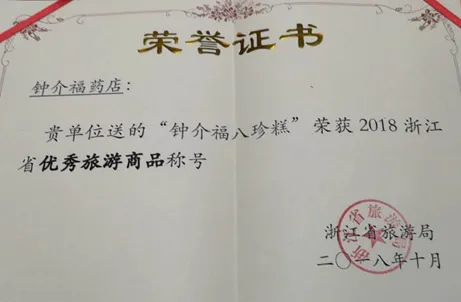 荣誉证书
钟介福药店：
贵单位送的“钟介福八珍糕”荣获2018浙江
省优秀旅游商品称号
浙江省旅游局
二〇一八年十月
浙江省旅游局